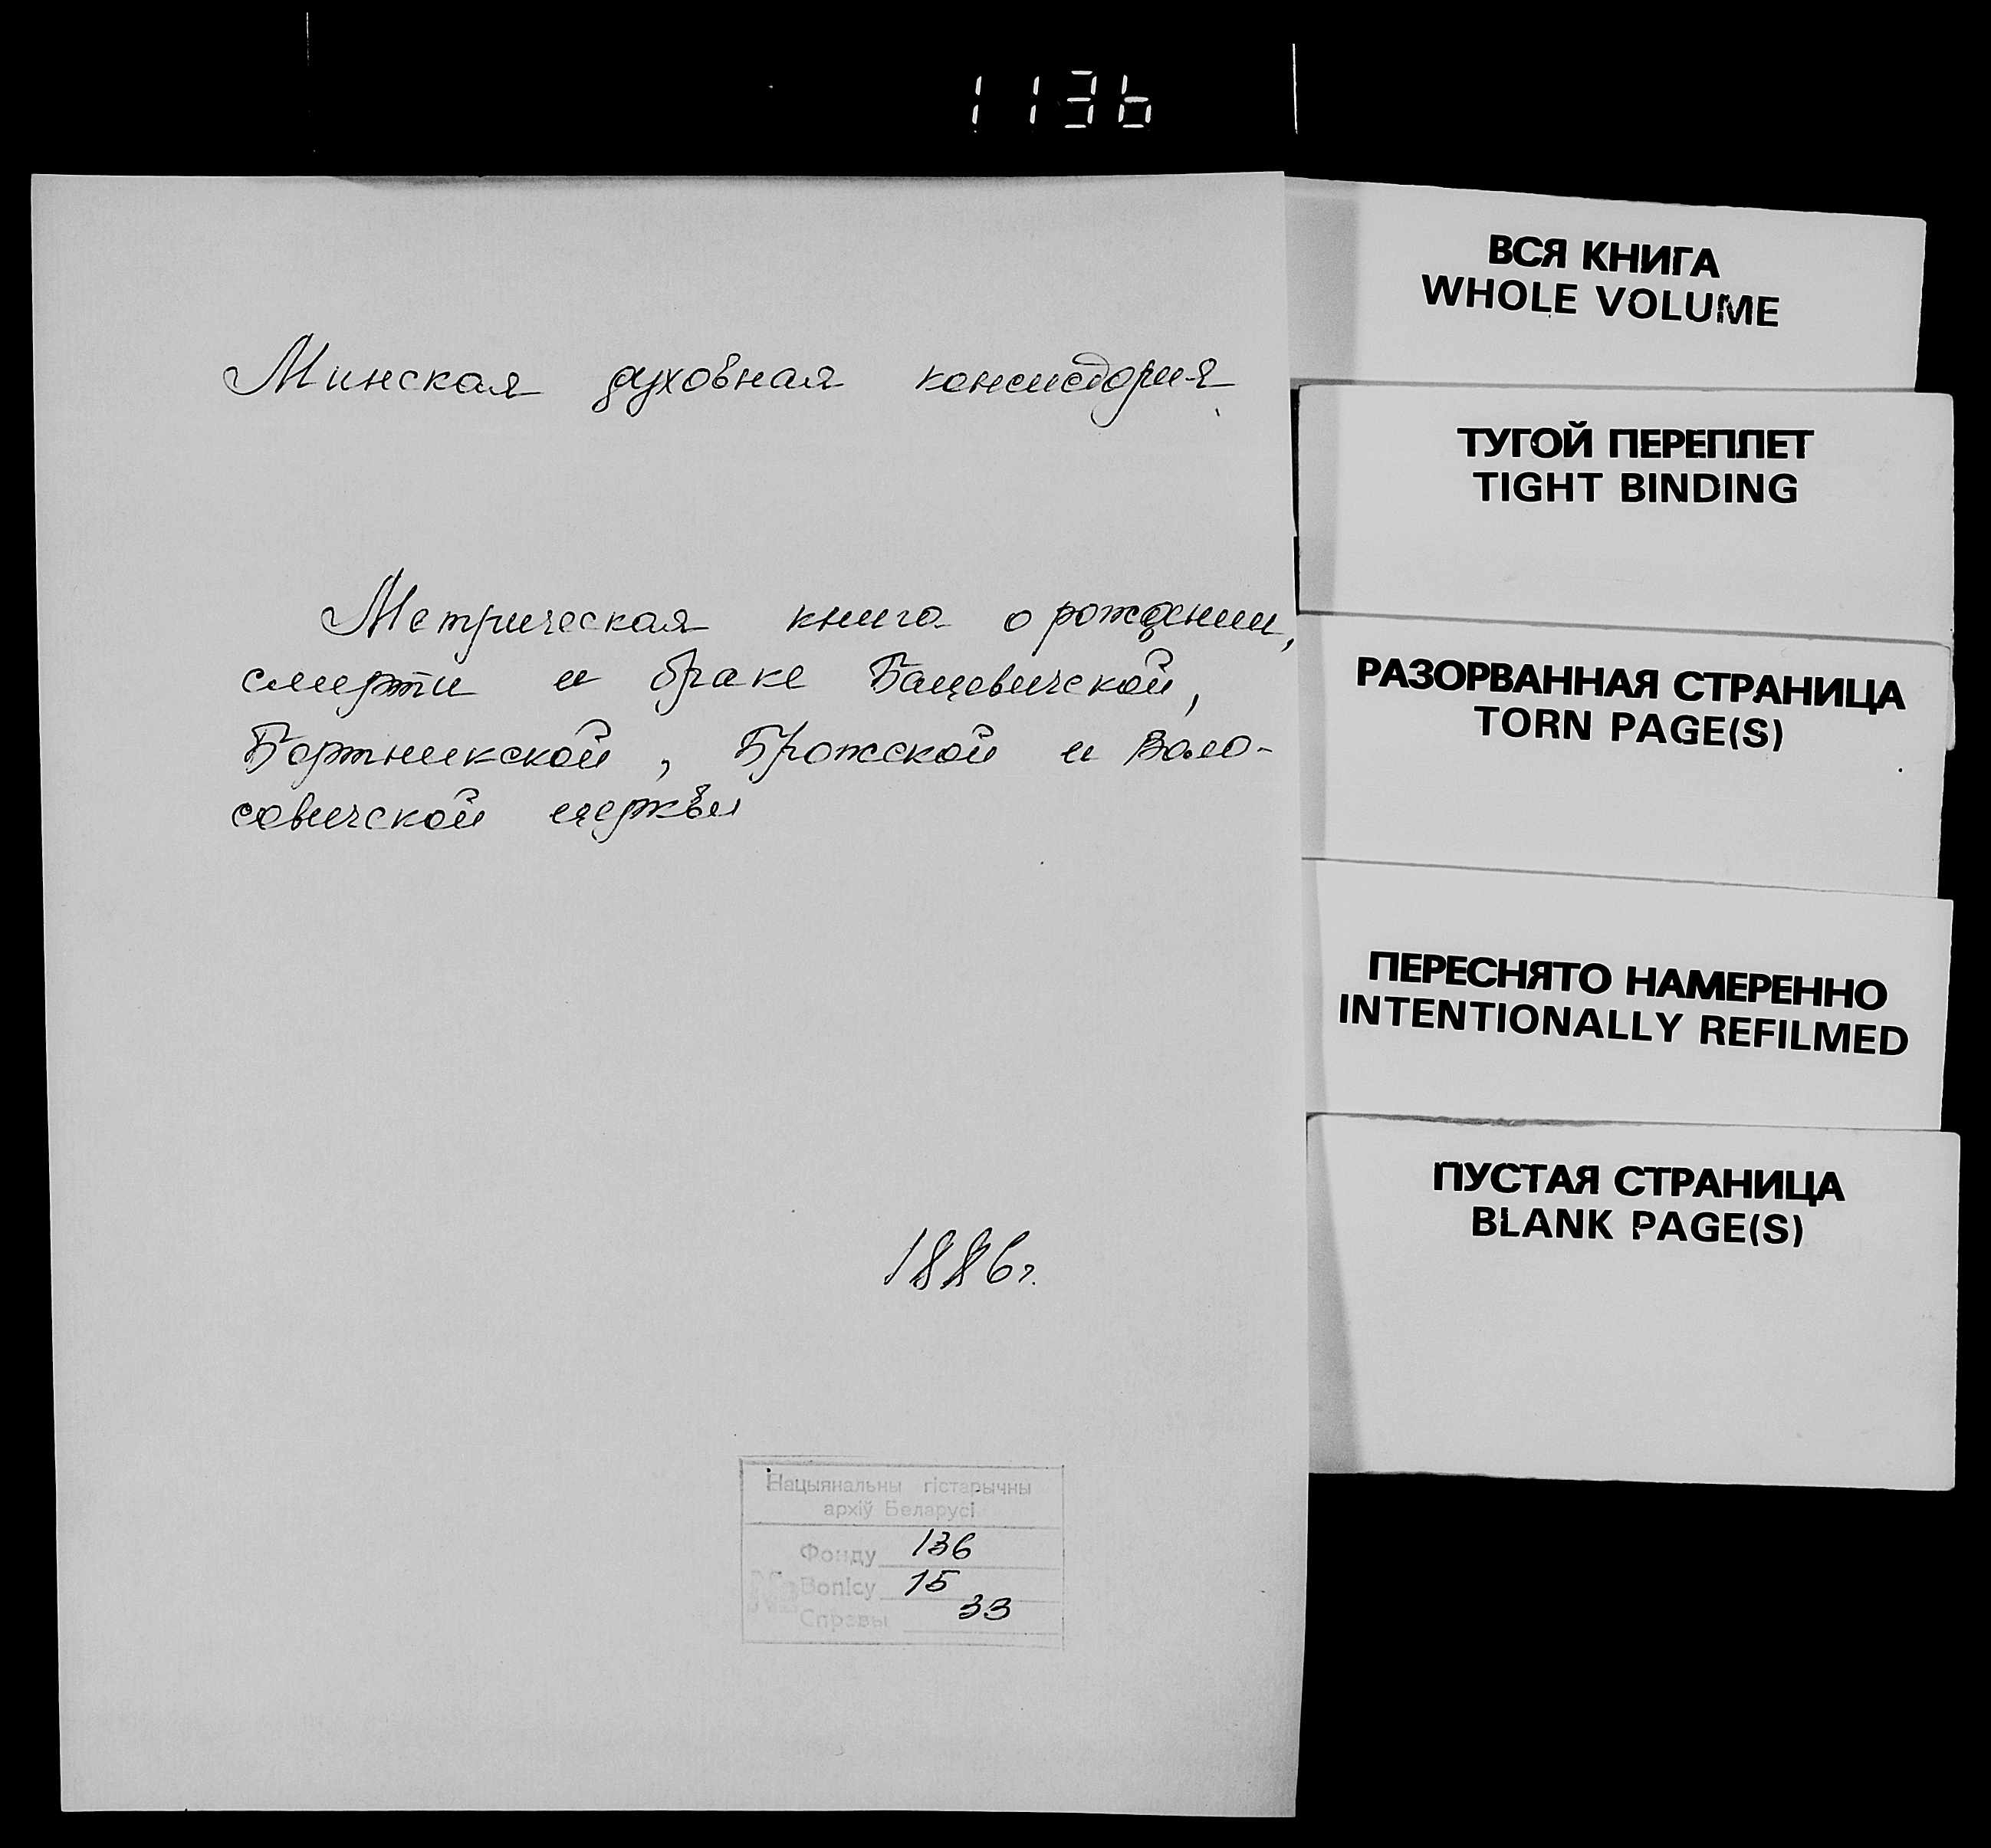 1136
Минская духовная консистория
Метрическая книга о рождении,
смерти и браке Бацевичской,
Бортникской, Брожской и Воло-
совичской церквы
1886г.
Нацыянальны гістарычны
архіў Беларусі
Фонду 136
№ Вопісу 15
Справы 33
ВСЯ КНИГА
WHOLE VOLUME
ТУГОЙ ПЕРЕПЛЕТ
TIGHT BINDING
РАЗОРВАННАЯ СТРАНИЦА
TORN PAGE(S)
ПЕРЕСНЯТО НАМЕРЕННО
INTENTIONALLY REFILMED
ПУСТАЯ СТРАНИЦА
BLANK PAGE(S)